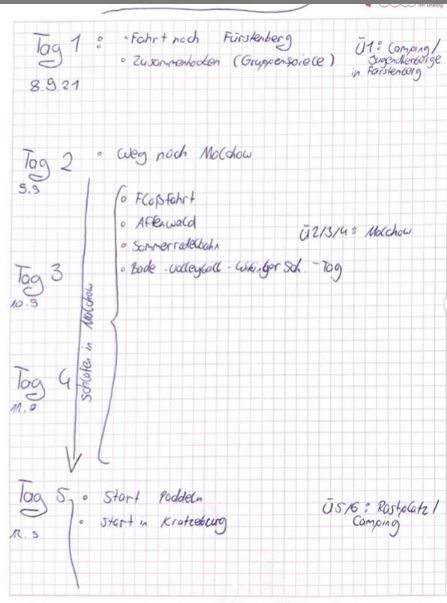 Tag 1 : • Fahrt nach Fürstenberg
8.9.21 • Zusammen kochen (Gruppenspiele)
Ü1: Camping/
Jugendherberge
in Fürstenberg
Tag 2 • Weg nach Malchow
9.9
• Floßfahrt
• Affenwald
• Sommerrodelbahn
• Bade - Volleyball - Wikinger Sch. - Tag
Ü2/3/4: Malchow
Tag 3
10.9
schlafen in Malchow
Tag 4
11.9
Tag 5 • Start Paddeln
12.9 • Start in Kratzeburg
Ü5/6: Rastplatz/
Camping